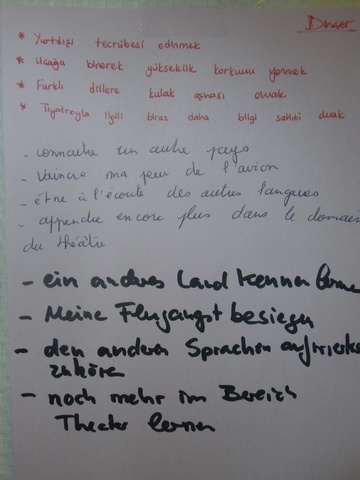 Dincer
* Yurtdışı tecrübesi edinmek
* Uçağa binerek yükseklik korkumu yenmek
* Farklı dillere kulak aşinası olmak
* Tiyatroyla ilgili biraz daha bilgi sahibi olmak
- connaître un autre pays
- Vaincre ma peur de l'avion
- être à l'écoute des autres langues
- apprendre encore plus dans le domaine
du théâtre
- ein anderes Land kennen lernen
- Meine Flugangst besiegen
- den anderen Sprachen
zuhören
- noch mehr im Bereich
Theater lernen